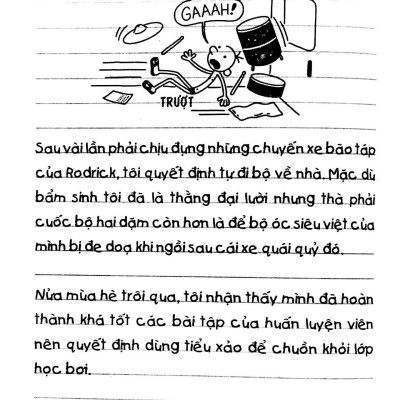 GAAAH!
TRƯỢT
Sau vài lần phải chịu đựng những chuyến xe bão táp
của Rodrick, tôi quyết định tự đi bộ về nhà. Mặc dù
bẩm sinh tôi đã là thằng đại lười nhưng thà phải
cuốc bộ hai dặm còn hơn là để bộ óc siêu việt của
mình bị đe doạ khi ngồi sau cái xe quái quỷ đó.
Nửa mùa hè trôi qua, tôi nhận thấy mình đã hoàn
thành khá tốt các bài tập của huấn luyện viên
nên quyết định dùng tiểu xảo để chuồn khỏi lớp
học bơi.